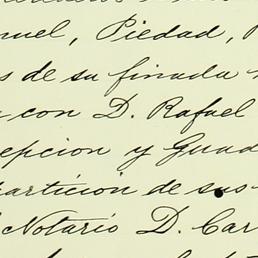 nuel, Piedad,
s de su finada
con D. Rafael
epcion y Guad
particion de sus
Notario D. Car